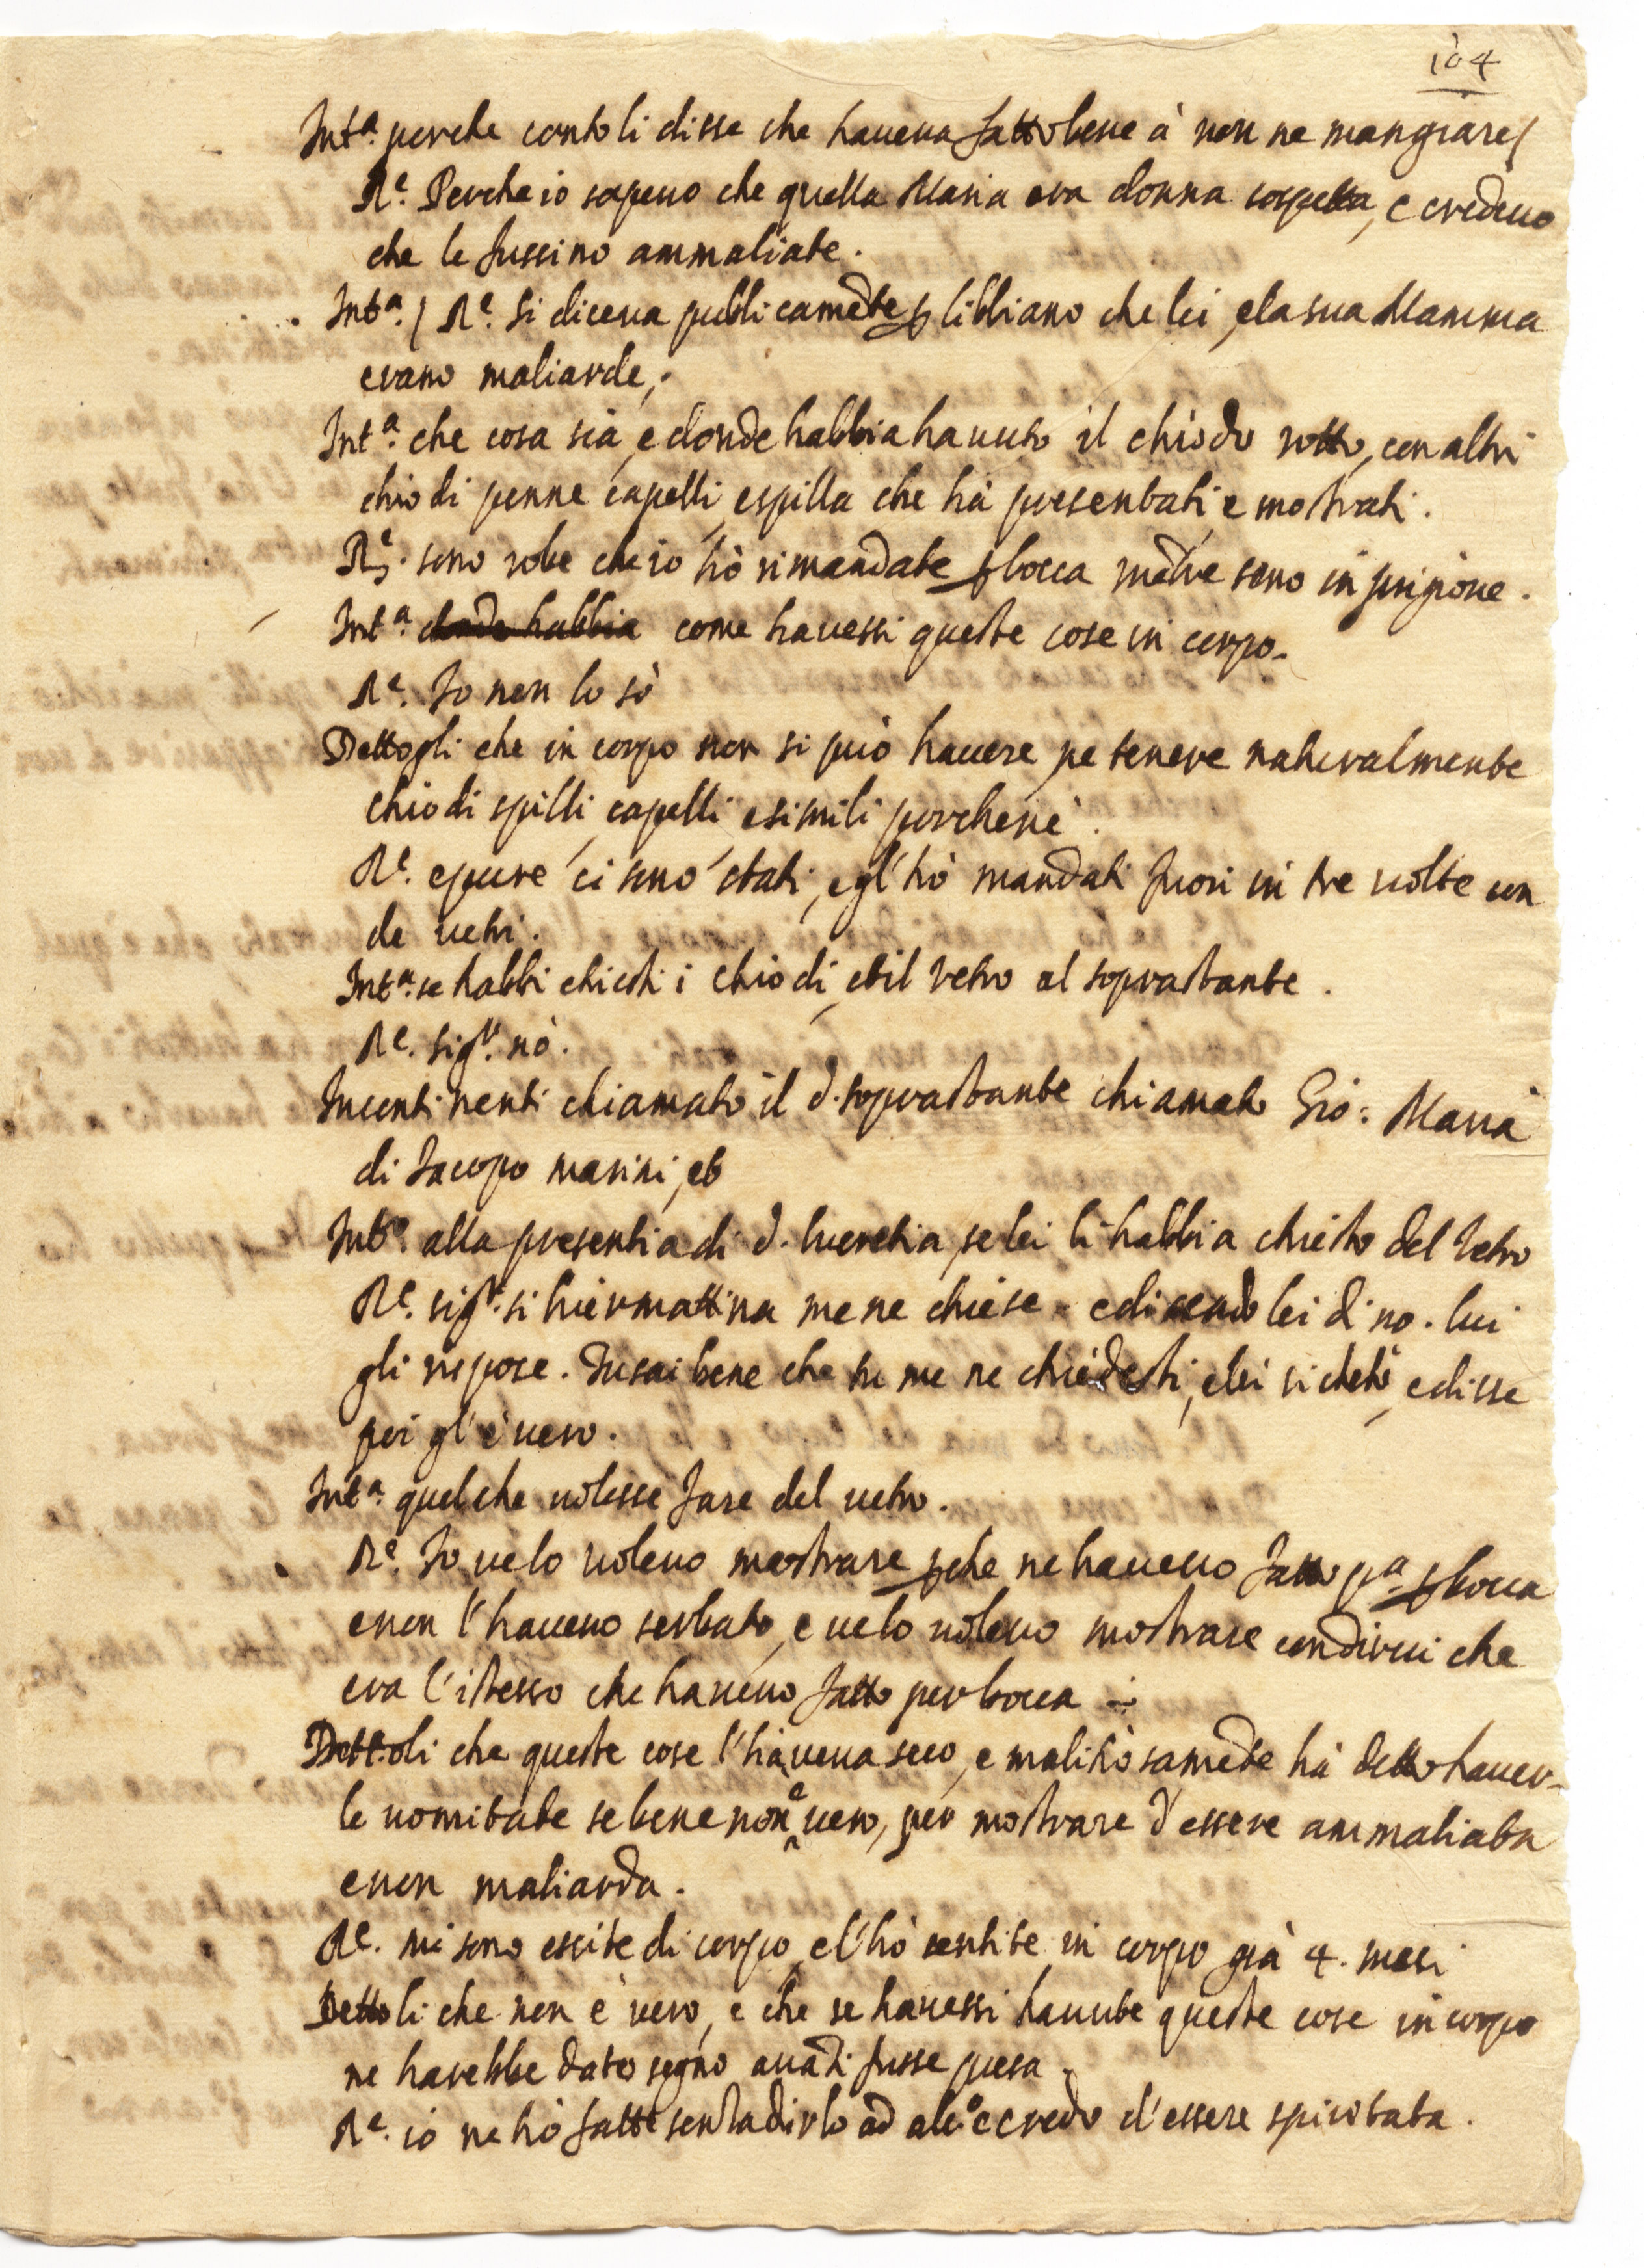 104
Int.ª perche conto li disse che haueua fatto bene à non ne mangiare/
R.e Perche io sapeuo che quella Maria era donna sospetta, e credeuo
che le fussino ammaliate.
Int.ª / R.e Si diceua publicamẽte p libbiano che lei, e la sua Mamma
erano maliarde,.
Int.ª che cosa sia, e donde habbia hauuto il chiodo rotto, con altri
chiodi penne capelli, e spilla che hà presentati e mostrati.
R.e sono robe che io hò rimandate p bocca mẽtre sono in prigione.
Int.ª donde habbia come hauessi queste cose in corpo.
R.e Io non lo sò
Dettogli che in corpo non si può hauere, ne tenere naturalmente
chiodi spilli, capelli e simili perche ne
R.e epure ci sono stati, e gl'hò mandati fuori in tre uolte con
de uetri.
Int.ª se habbi chiesti i chiodi, et il vetro al soprastante.
R.e Sig.r nò.
Incontinenti chiamato il d. soprastante chiamato Gio: Maria
di Jacopo marini, et
Int.º alla presentia di d. lucretia, se lei li habbia chiesto del vetro
R.e sig.r si hiermattina me ne chiese e dicendo lei di no. lui
gli rispose. Tu sai bene che tu me ne chiedesti, e lei si chetò, e disse
poi gl'è uero.
Int.ª quel che uolesse fare del uetro.
R.e Io ue lo uoleuo mostrare pche ne haueuo fatto p.ª p bocca
e non l'haueuo serbato, e ue lo uoleuo mostrare con dirui che
era l'istesso che haueuo fatto per bocca
Dettoli che queste cose l'haueua seco, e malitiosamẽte hà detto hauer-
le uomitate se bene non è uero, per mostrare d'essere ammaliata
e non maliarda.
R.e mi sono escite di corpo, e l'hò sentite in corpo già 4. mesi
Dettoli che non è vero, e che se hauessi hauute queste cose in corpo
ne harebbe dato segno auãti fusse presa.
R.e io ne hò fatte senza dirlo ad alc.º e credo d'essere spiritata.